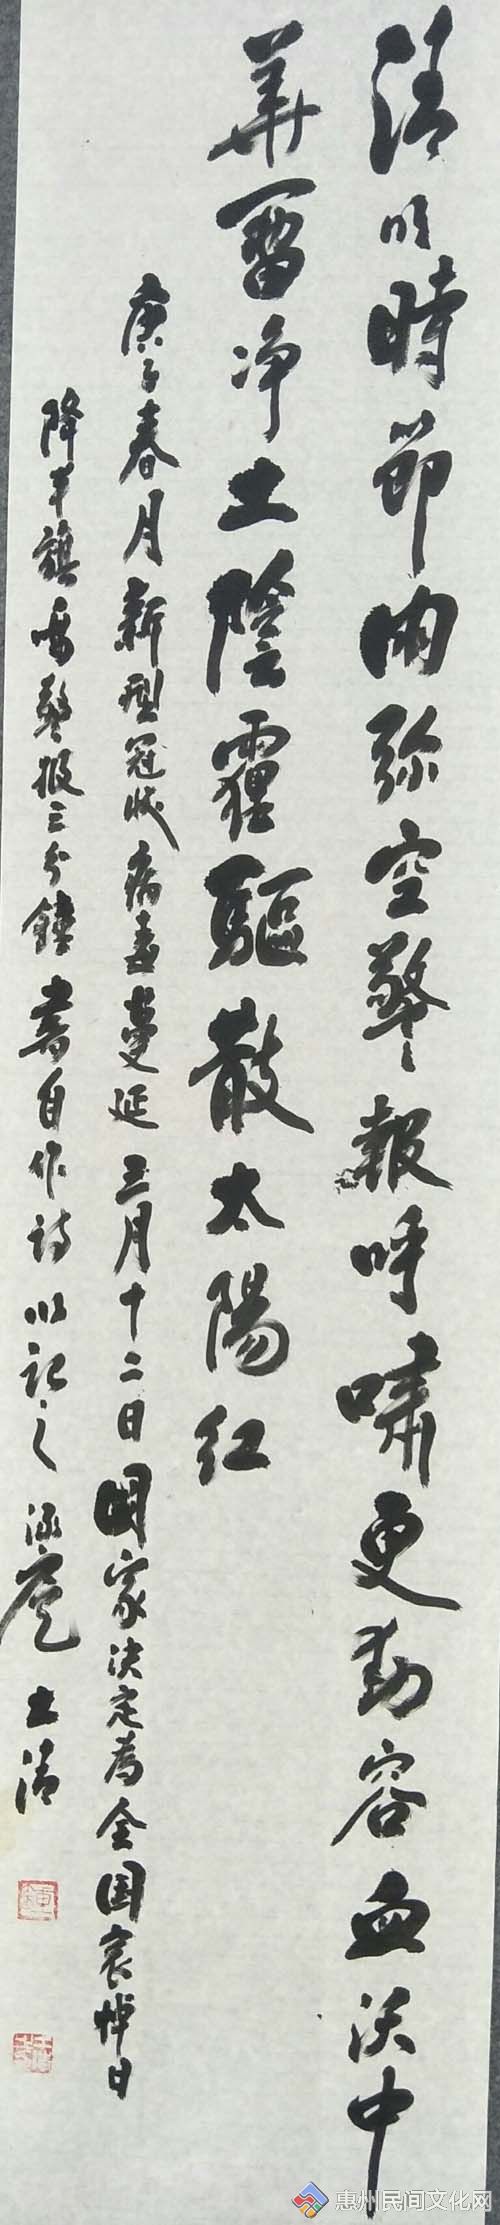 清明時節雨弥空警報呼嘯更動容血沃中
華留净土陰霾驅散太陽紅
庚子春月新型冠状病毒蔓延三月十二日國家决定為全国哀悼日
降半旗鳴警报三分鐘書自作诗以記之士清
惠州民间文化网